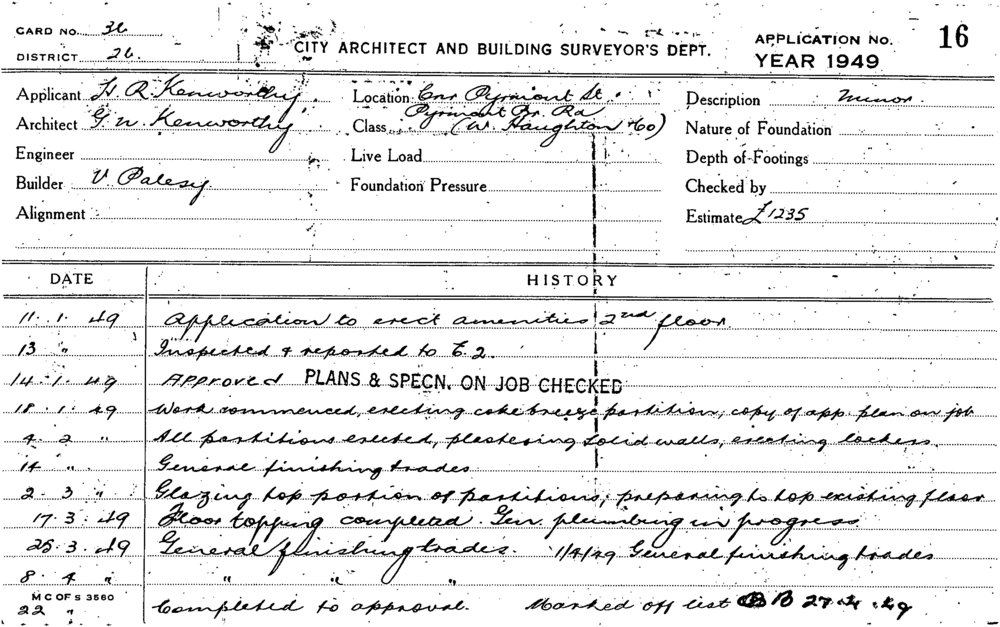 CARD No. 36
DISTRICT 26
CITY ARCHITECT AND BUILDING SURVEYOR'S DEPT.
APPLICATION No. 16
YEAR 1949
Applicant H. R. Kenworthy
Architect G. W. Kenworthy
Engineer
Builder V. Palesy
Alignment
Location Cnr Pyrmont St.
Pyrmont Br. Rd
Class (W. Haughton & Co)
Live Load
Foundation Pressure
Description Minor
Nature of Foundation
Depth of Footings
Checked by
Estimate £1235
DATE HISTORY
11. 1. 49 Application to erect amenities 2nd floor
13 " Inspected & reported to E. 2.
14. 1. 49 Approved PLANS & SPECN. ON JOB CHECKED
18. 1. 49 Work commenced, erecting coke breeze partition, copy of app. plan on job
4. 2 " All partitions erected, plastering solid walls, erecting lockers.
14 " General finishing trades
2. 3 " Glazing top portion of partitions; preparing to top existing floor
17. 3. 49 Floor topping completed. Gen. plumbing in progress
25. 3. 49 General finishing trades. 1/4/49 General finishing trades
8. 4 " " " "
M C OF S 3560
22 " Completed to approval. Marked off list B 27. 4. 49